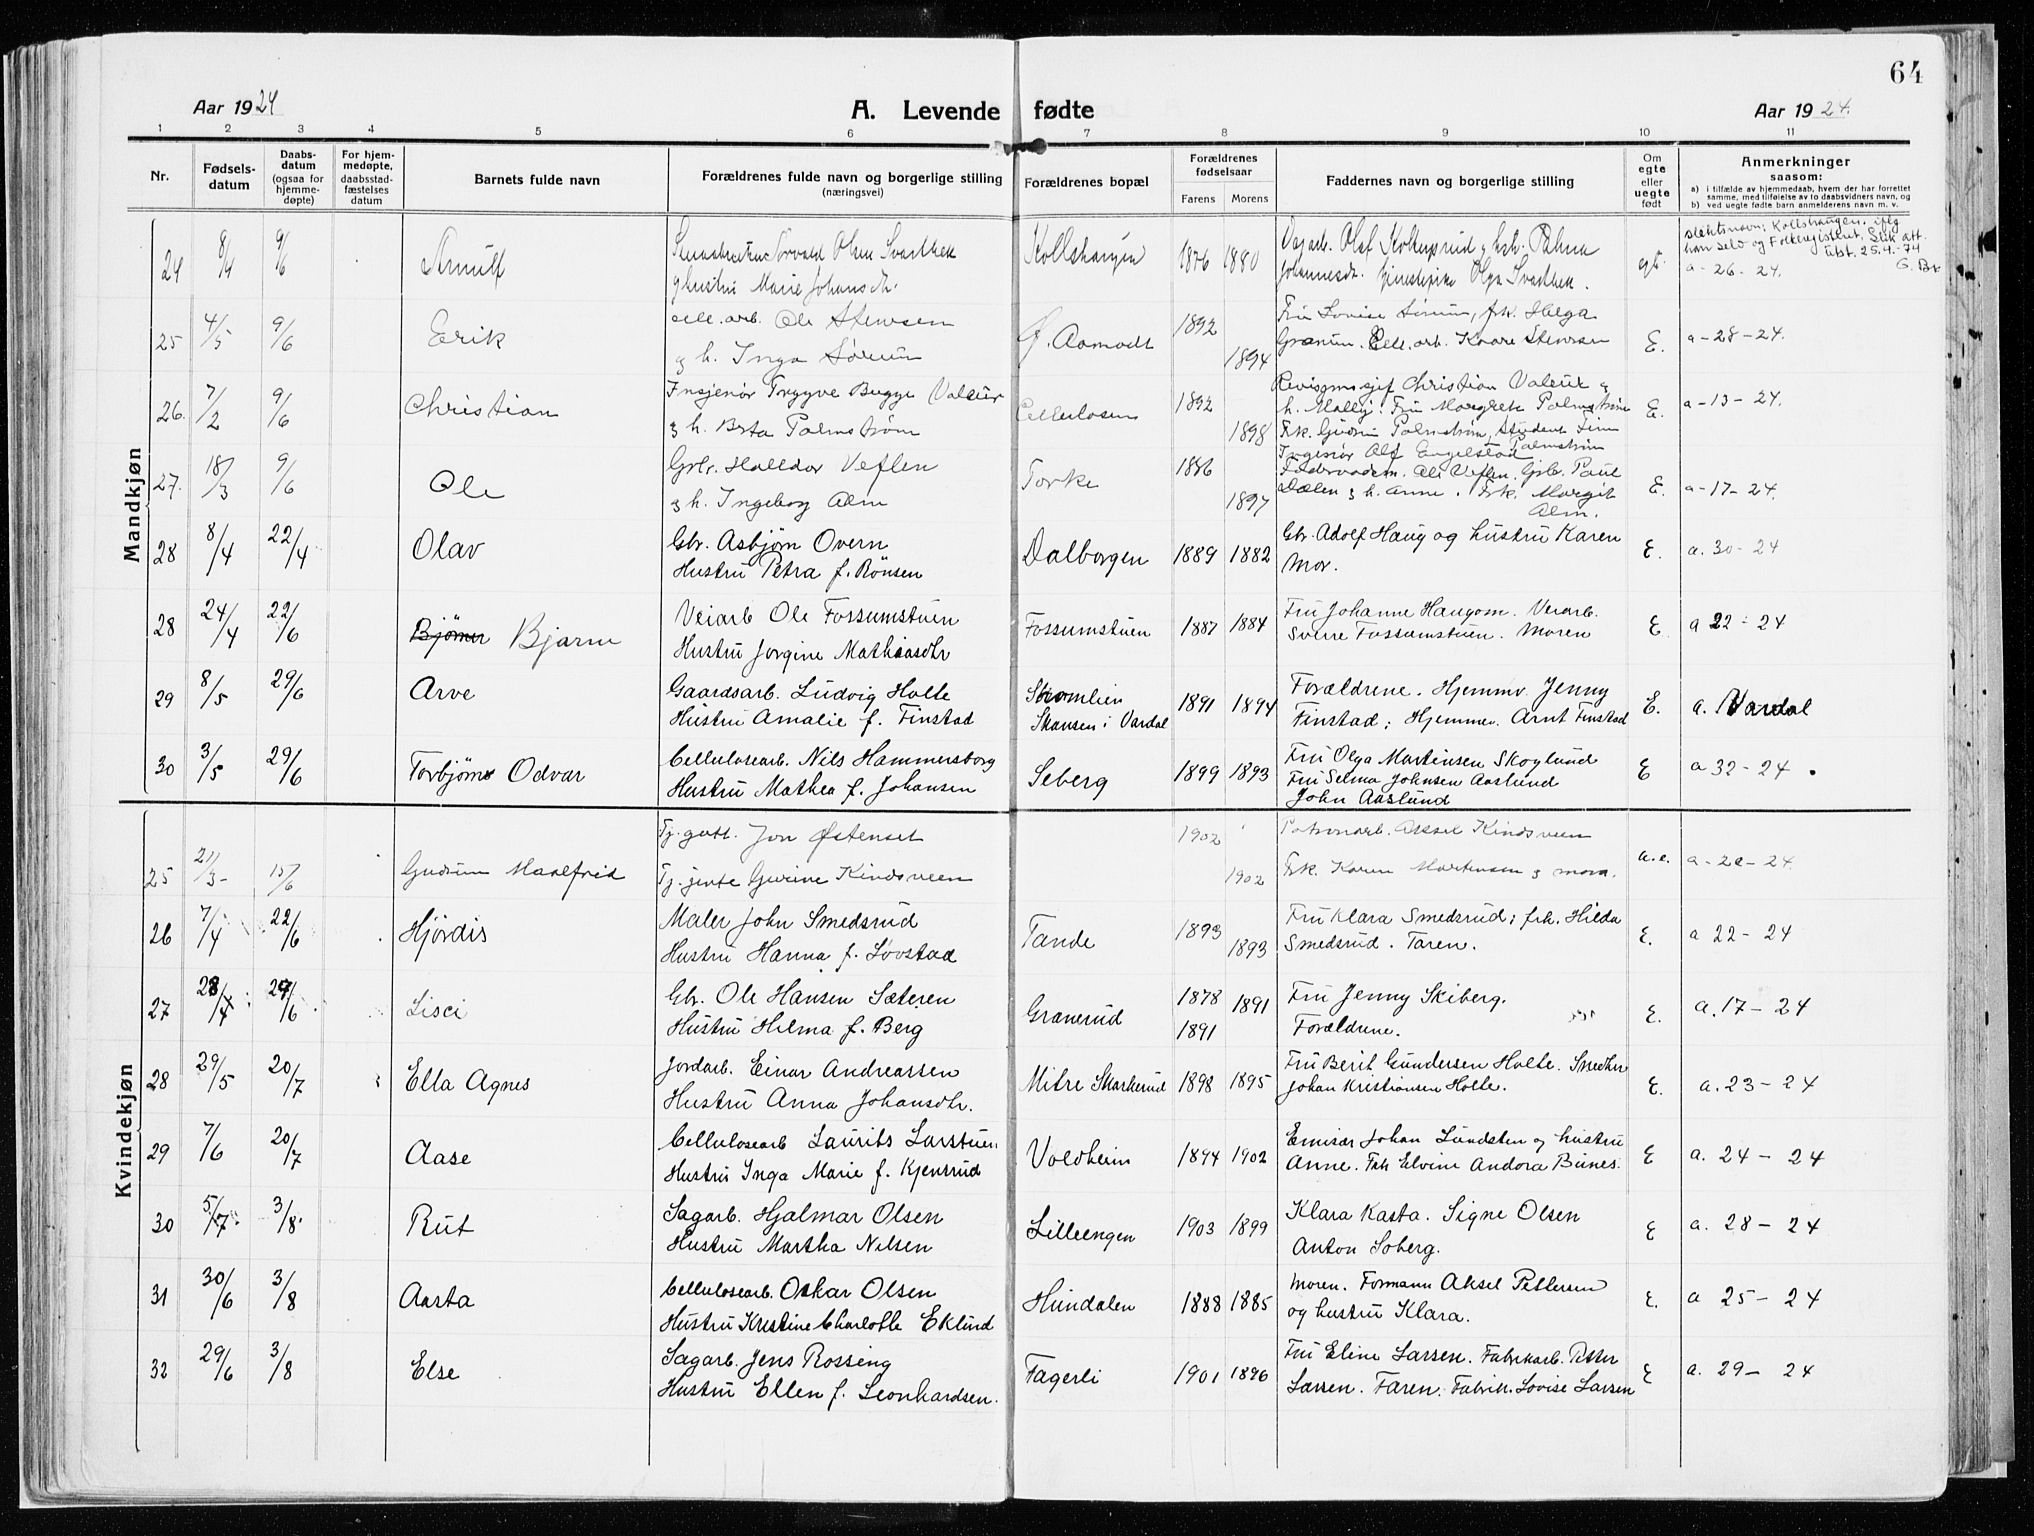 64
Aar 1924
A. Levende fødte
Aar 1924.
1 2 3 4 5 6 7 8 9 10 11
Nr.
Fødsels-
datum
Daabs-
datum
(ogsaa for
hjemme-
døpte)
For hjem-
medøpte,
daabsstad-
fæstelses
datum
Barnets fulde navn
Forældrenes fulde navn og borgerlige stilling
(næringsvei)
Forældrenes bopæl
Forældrenes
fødselsaar
Farens Morens
Faddernes navn og borgerlige stilling
Om
egte
eller
uegte
født
Anmerkninger
saasom:
a) i tilfælde av hjemmedaab, hvem der har forrettet
samme, med tilføielse av to daabsvidners navn, og
b) ved uegte fødte barn anmelderens navn m. v.
Mandkjøn
24 8/4 9/6 Arnulf
Torvald Olsen Svartbek
hustru Marie Johansdtr.
Kollshaugen 1876 1880
Olaf Kolkinsrud
Johannesdtr. Olga Svartbek.
egte.
slektsnavn: Kollshaugen, iflg
han selv og Folkeregisteret. Slik att.
utst. 25.4.-74
a-26-24. G. Br
25 4/5 9/6 Erik
cell. arb. Ole Stensen
g h. Inga Sørum
Ø. Aamodt 1892 1894
Fru Lovise Sørum, frk. Helga
Granum. Cell. arb. Kaare Stensen
E. a-28-24.
26. 7/2 9/6 Christian
Insjenør Trygve Bugge Valeur
g h. Berta Palmstrøm
Cellulosen 1892 1898
Christian Valeur g
h. Molly. Fru Margrete Palmstrøm
Frk. Gudrun Palmstrøm, Student Finn
Palmstrøm
Ingeniør Olf Engelstad
E. a-13-24.
27. 18/3 9/6 Ole
Grbr. Halldor Veflen
g h. Ingeborg Alm
Torke 1886 1897
Ole Veflen. Grb. Paul
Dalen g h. Anne. Frk. Margit
Alm.
E. a-17-24.
28 8/4 22/4 Olav
Gbr. Asbjørn Overn
Hustru Petra f. Rønsen
Dalborgen 1889 1882
Gbr. Adolf Haug og hustru Karen
Mor.
E. a. 30-24
28 24/4 22/6 Bjørner Bjarne
Veiarb Ole Fossumstuen
Hustru Jorgine Mathiasdtr
Fossumstuen 1887 1884
Fru Johanne Haugom. Veiarb.
Sverre Fossumstuen. Moren
E. a 22-24
29 8/5 29/6 Arve
Gaardsarb. Ludvig Holte
Hustru Amalie f. Finstad
Skomlien
Skansen i Vardal 1891 1894
Forældrene. Hjemmv. Jenny
Finstad; Hjemmev. Arnt Finstad
E. a. Vardal
30 3/5 29/6 Torbjørn Odvar
Cellulosearb. Nils Hammersborg
Hustru Mathea f. Johansen
Seberg 1899 1893
Fru Olga Martinsen Skoglund
Fru Selma Johnsen Aaslund
John Aaslund
E a 32-24.
Kvindekjøn
25 21/3- 15/6 Gudrun Maalfrid
Tj. gutt. Jon Østenset
Tj. jente Gurine Kindsveen
1902 1902
Patronarb. Aksel Kindsveen
Frk. Karen Martinsen g mora.
u.e. a-20-24.
26 7/4 22/6 Hjørdis
Maler John Smedsrud
Hustru Hanna f. Lovstad
Tande 1893 1893
Fru Klara Smedsrud; frk. Hilda
Smedsrud. Faren.
E. a 22-24
27 28/4 29/6 Lisci
Gbr. Ole Hansen Sæteren
Hustru Hilma f. Berg
Granerud 1878 1891
1891
Fru Jenny Skiberg.
Forældrene.
E. a. 17-24
28 29/5 20/7 Ella Agnes
Jordarb. Einar Andreassen
Hustru Anna Johansdtr.
Mitre Skarkerud 1898 1895
Fru Berit Gundersen Holte. Smedkr
Johan Kristiansen Holte.
E. a. 23-24
29 7/6 20/7 Aase
Cellulosearb Laurits Larstuen
Hustru Inga Marie f. Kjensrud
Voldheim 1894 1902
Emisær Johan Lundsten og hustru
Anne. Frk Elvine Andora Bunes.
E a. 24-24
30 5/7. 3/8. Rut
Sagarb. Hjalmar Olsen
Hustru Martha Nilsen
Lilleengen 1903 1899
Klara Kasta. Signe Olsen
Anton Soberg.
E a. 28-24
31 30/6 3/8 Aasta
Cellulosearb. Oskar Olsen
Hustru Kristine Charlotte Eklund
Hundalen 1888 1885
Moren. Formann Aksel Pettersen
og hustru Klara.
E. a 25-24
32 29/6 3/8 Else
Sagarb. Jens Rossing
Hustru Ellen f. Leonhardsen.
Fagerli 1901 1896
Fru Eline Larsen. Fabrikarb. Petter
Larsen. Faren. Fabrik. Lovise Larsen
E a. 29-24